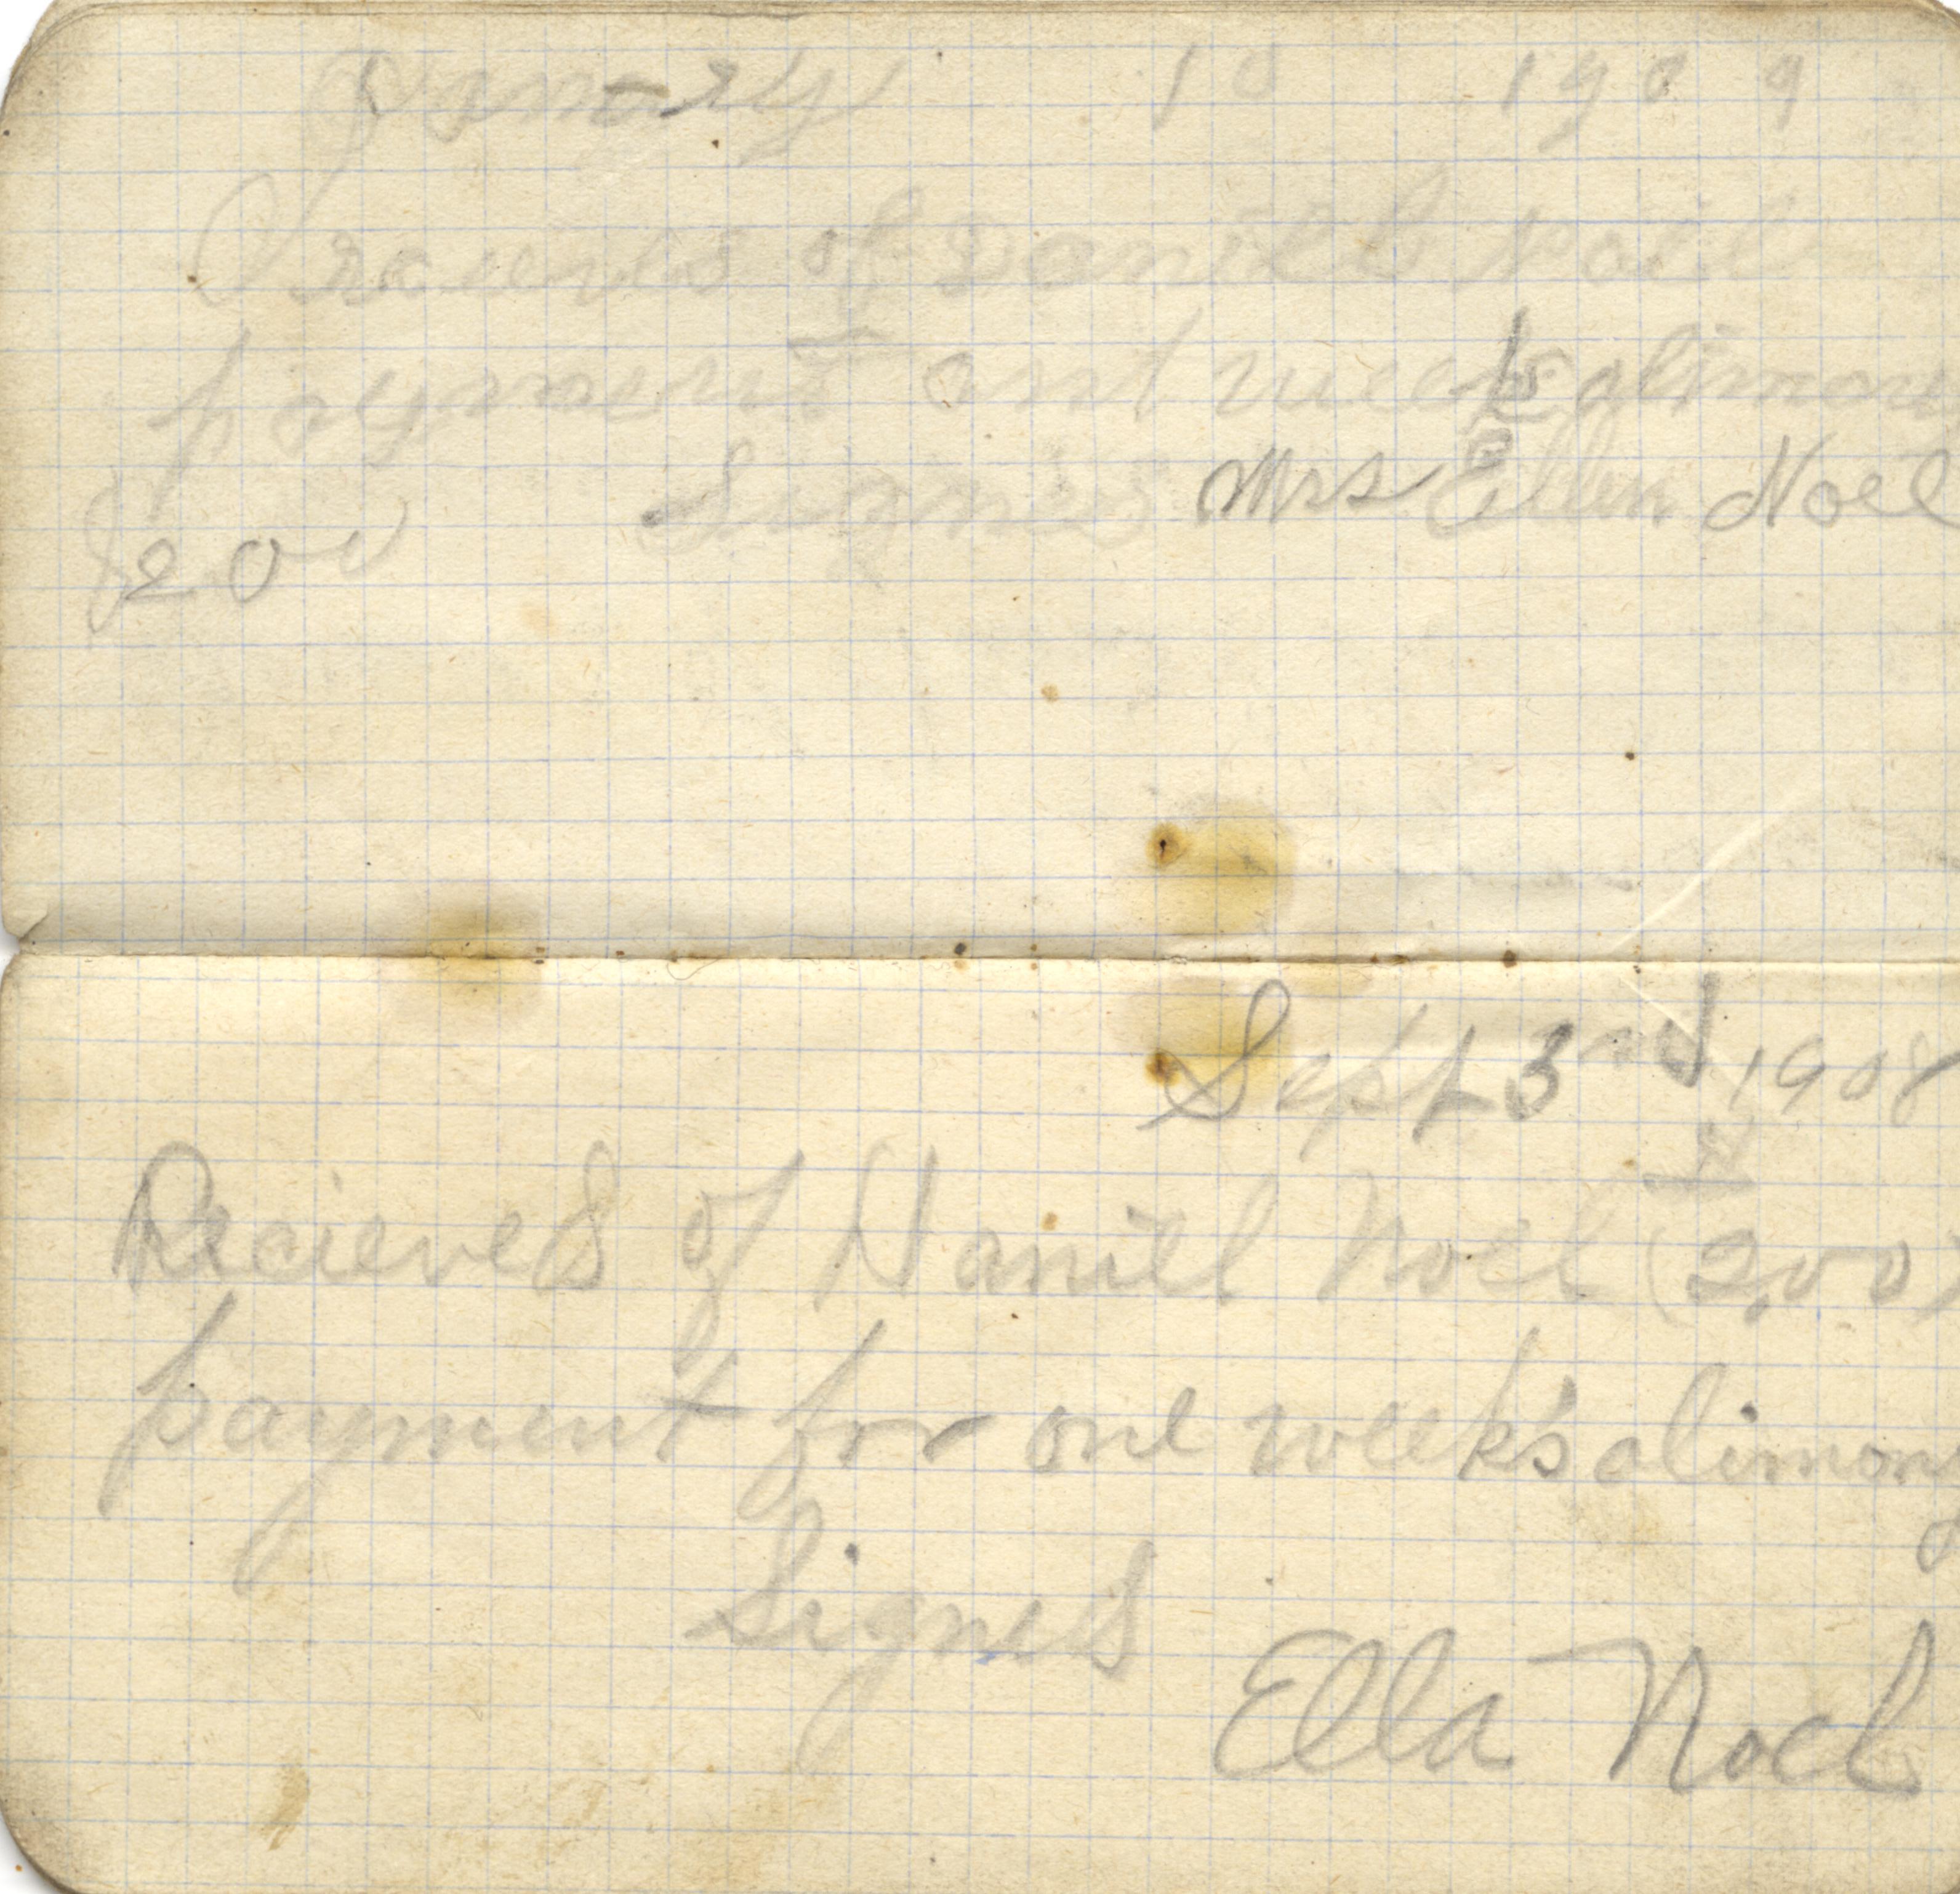 January 10 1909
recieved of Daniel Noel
payment one week alimony
Signed Mrs Ellen Noel
$200
Sept 3rd 1908
Recieved of Daniel Noel (2,00)
payment for one week's alimony
Signed
Ella Noel